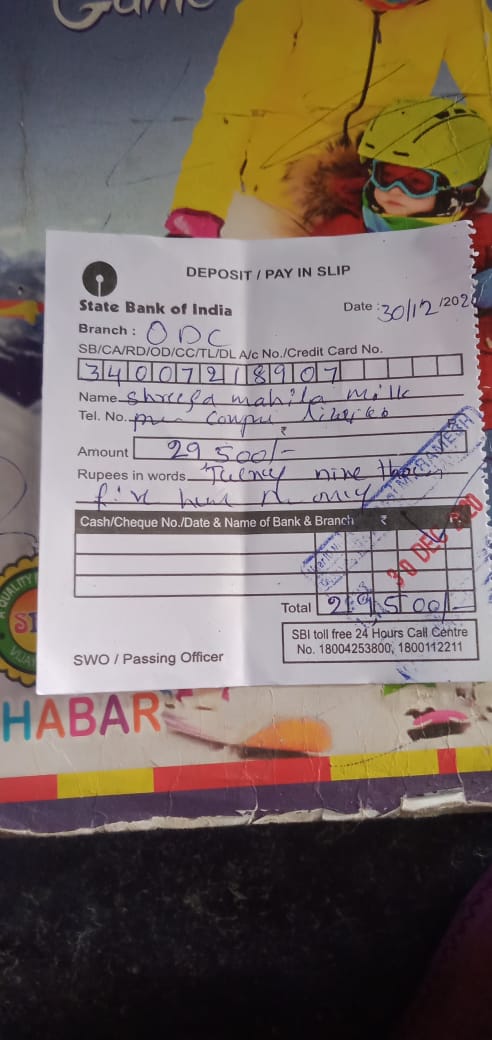 Game
DEPOSIT / PAY IN SLIP
State Bank of India
Date : 30/12/202
Branch : ODC
SB/CA/RD/OD/CC/TL/DL A/c No./Credit Card No.
34007218907
Name Shreeja mahila milk
Tel. No.
₹
Amount 29 500/-
Rupees in words nine
five only
Cash/Cheque No./Date & Name of Bank & Branch ₹
30 DEC 2020
Total 29500/-
SBI toll free 24 Hours Call Centre
No. 18004253800, 1800112211
SWO / Passing Officer
A QUALITY
HABAR